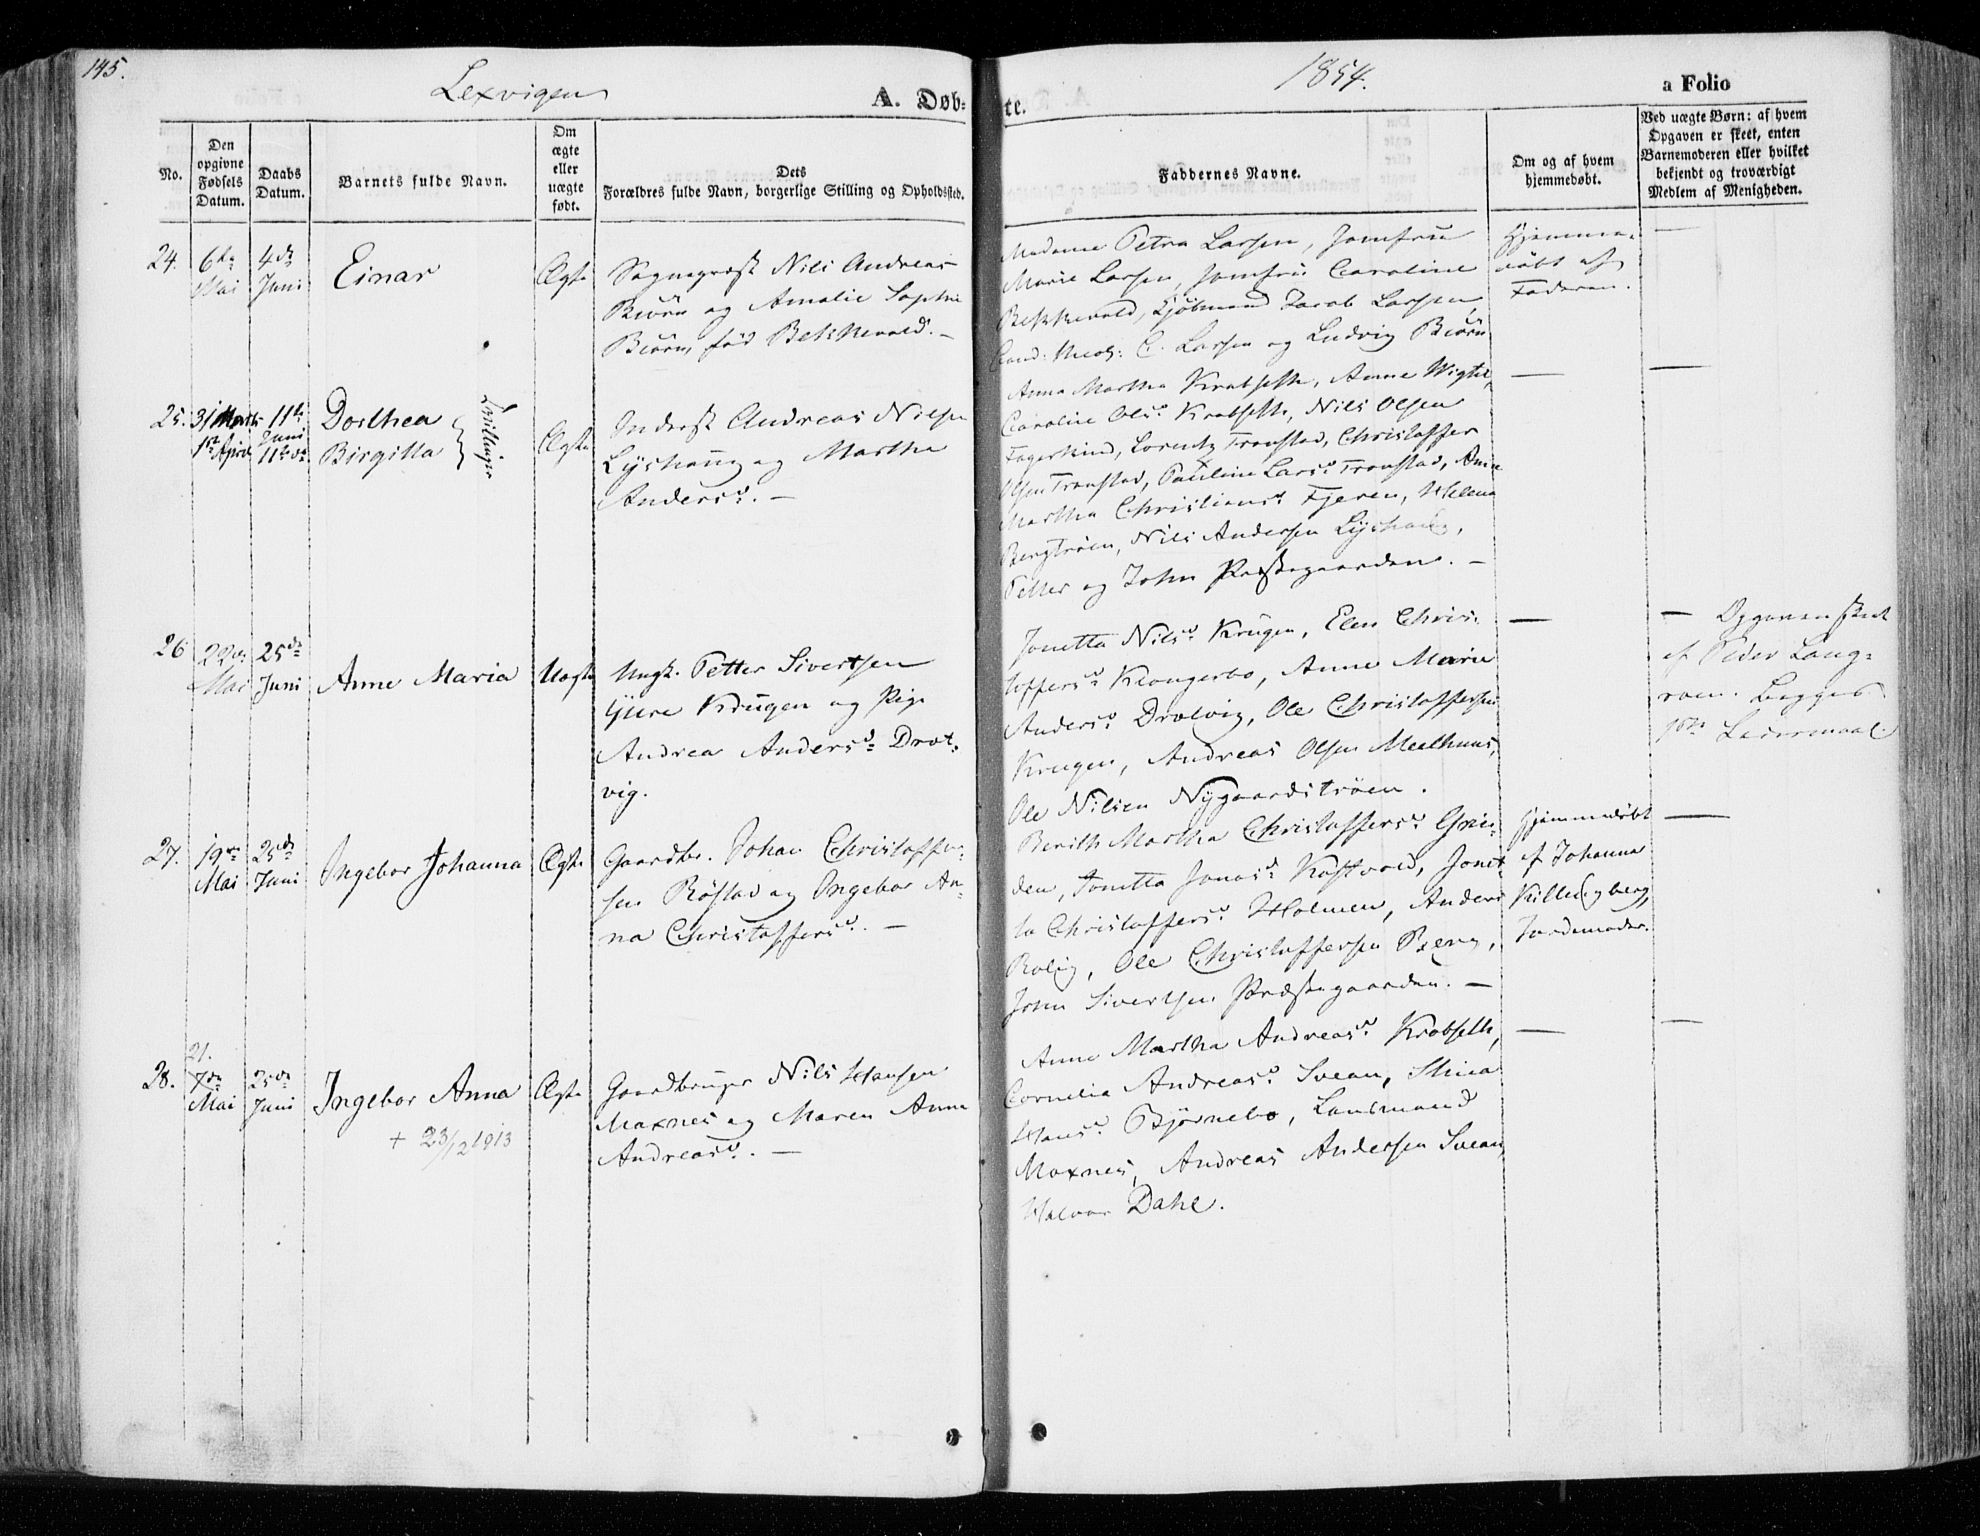 145.
Lexvigen
A. Døb=
te.
1854.
a Folio
No.
Den
opgivne
Fødsels
Datum.
Daabs
Datum.
Barnets fulde Navn.
Om
ægte
eller
uægte
født.
Dets
Forældres fulde Navn, borgerlige Stilling og Opholdssted.
Faddernes Navne.
Om og af hvem
hjemmedøbt.
Ved uægte Børn: af hvem
Opgaven er skeet, enten
Barnemoderen eller hvilket
bekjendt og troværdigt
Medlem af Menigheden.
24.
6te
Mai
4de
Juni
Einar
Ægte
Sognepræst Nils Andreas
Biörn og Amalie Sophie
Biörn, fød Bekkevold. —
Madame Petra Larsen, Jomfrue
Marie Larsen, Jomfrue Caroline
Bekkevold, Kjøbmand Jacob Larssen,
Cand: C. Larsen og Ludvig Biörn
Hjemme-
döbt af
Faderen.
—
25.
31 Marts
1ste April
11te
Juni
11te
Dorthea
Birgitta
Tvillinger
Ægte
Inderst Andreas Nilsen
Lÿshaug og Martha
Andersd. —
Anna Martha Krabseth, Anne Wigtil,
Caroline Olsd. Krabseth, Nils Olsen
Fagerlind, Lorentz Tronstad, Christoffer
Olsen Tronstad, Pauline Larsd. Tronstad, Anne
Martha Christiansd. Fjeren, Helena
Bergtröen, Nils Andersen Lÿshaug,
Petter og John Præstegaarden. —
—
—
26
22de
Mai
25de
Juni
Anne Maria
Uægte
Ungk. Petter Sivertsen
Krügen og Pige
Andrea Andersd. Drat-
vig.
Jonetta Nilsd. Krügen, Elen Chris-
toffersd. Klangerbo, Anne Marie
Andersd. Dratvig, Ole Christoffersen
Krugen, Andreas Olsen Meelhuus,
Ole Nilsen Nÿgaardströen.
—
— Opgaven skeet
af Peder Lang-
roen. Begges
1ste Leiermaal.
27.
19de
Mai
25de
Juni
Ingebor Johanna
Ægte
Gaardbr. Johan Christoffer-
sen Röstad og Ingebor An-
na Christoffersd. —
Berith Martha Christoffersd. Grön-
den, Jonetta Jonasd. Kaftvold, Jonet-
ta Christoffersd. Holmen, Anders
Rolig, Ole Christoffersen Berg,
John Sivertsen Præstegaarden. —
Hjemmedöbt
af Johanna
Killingberg,
Jordemoder.
—
28.
21.
7de
Mai
25de
Juni
Ingebor Anna
+ 23/12 1913
Ægte
Gaardbruger Nils Hansen
Maxnes og Maren Anna
Andreasd. —
Anne Martha Andreasd. Krabseth,
Cornelia Andreasd. Svean, Stina
Hansd. Björnebo, Lansmand
Maxnes, Andreas Andersen Svean,
Halvor Dahl.
—
—